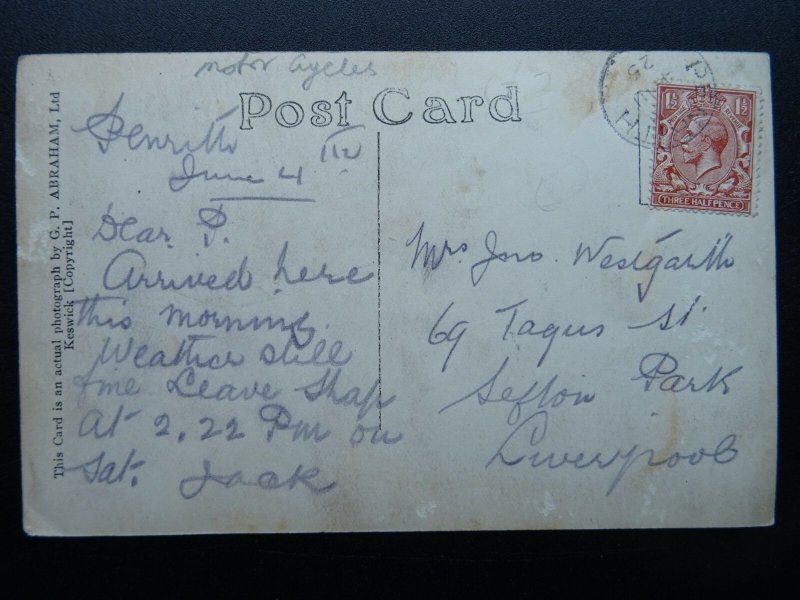 motor cycles
Post Card
This Card is an actual photograph by G. P. ABRAHAM, Ltd
Keswick [Copyright]
1½ 1½
THREE HALFPENCE
25
Penrith
June 4
Dear P.
Arrived here
this morning.
Weather still
fine Leave Shap
At 2.22 Pm on
Sat. Jack
Mrs Jno. Westgarth
69 Tagus St.
Sefton Park
Liverpool